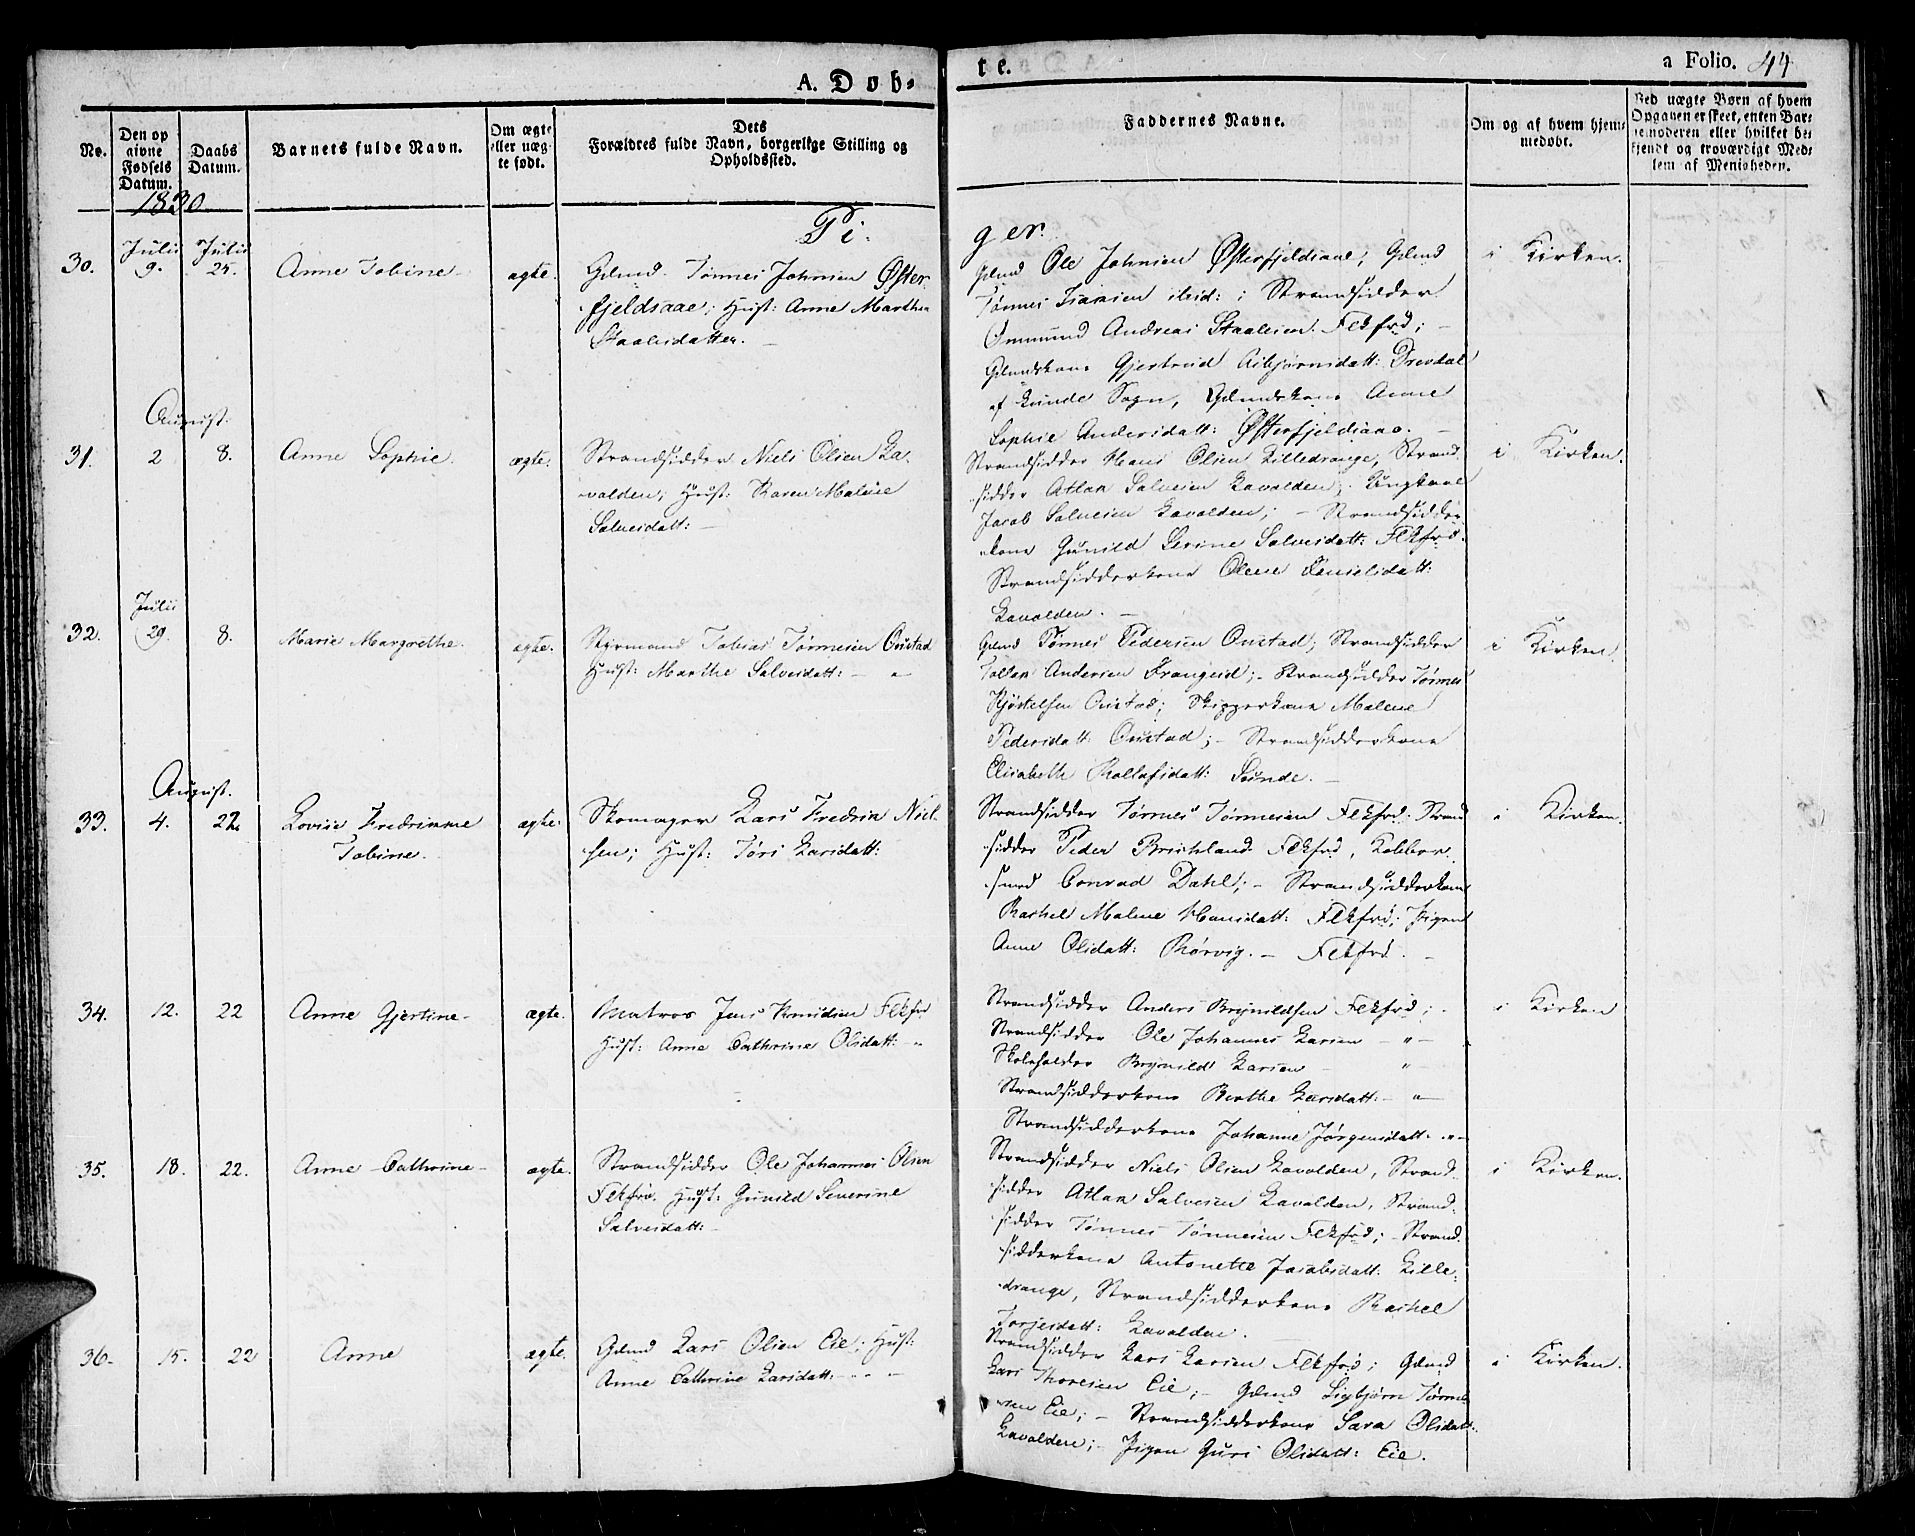 A. Døb-
te.
a Folio. 44
No.
Den op
givne
Fødsels
Datum.
Daabs
Datum.
Barnets fulde Navn.
Om ægte
eller uæg-
te født.
Dets
Forældres fulde Navn, borgerlige Stilling og
Opholdssted.
Faddernes Navne.
Om og af hvem hjem-
medøbt.
Ved uægte Børn af hvem
Opgaven er skeet, enten Bar-
nemoderen eller hvilket be-
kjendt og troværdigt Med-
lem af Menigheden.
1830
Pi-
ger.
30.
Julii
9.
Julii
25.
Anne Tobine
ægte.
Gdmd. Tønnes Johnsen Øster-
fjeldsaae; Hust: Anne Marthea
Staalesdatter.
Gdmd Ole Johnsen Østerfjeldsaae; Gdmd
Tønnes Isansen ibid: ; Strandsidder
Ommund Andreas Staalesen Flkfrd;
Gdmdskone Gjertrud Asbjørnsdatt: Drevdal
af Lunde Sogn, Gdmdskone Anne
Sophie Andersdatt: Østerfjeldsaae.
i Kirken.
31.
August.
2
8.
Anne Sophie.
ægte.
Strandsidder Niels Olsen La-
valden; Hust: Karen Malene
Salvesdatt:
Strandsidder Hans Olsen Lilledrange, Strand-
sidder Atlak Salvesen Lavolden; Ungkarl
Jacob Salvesen Lavolden; - Strandsidder-
kone Gunild Serine Salvesdatt: Flkfrd.
Strandsidderkone Olene Danielsdatt:
Lavolden.
i Kirken.
32.
Julii
29.
8.
Marie Margrethe.
ægte.
Styrmand Tobias Tønnesen Oustad
Hust: Marthe Salvesdatt: - "
Gdmd Tønnes Pedersen Oustad; Strandsidder
Tollak Andersen Frangeid; - Strandsidder Tønnes
Kjøstelsen Oustad; Skipperkone Malene
Pedersdatt. Oustad; - Strandsidderkone
Elisabeth Rollefsdatt: Sunde.
i Kirken.
33.
August.
4.
22.
Lovise Fredrimme
Tobine.
ægte.
Skomager Lars Fredrik Niel-
sen; Hust: Tøri Larsdatt:
Strandsidder Tønnes Tønnesen Flkfrd. Strand-
sidder Peder Birkeland Flkfrd, Kobber-
smed Conrad Dahl; - Strandsidderkone
Rachel Malene Hansdatt: Flkfrd; Pigen
Anne Olsdatt: Rørvig. - Flkfrd.
i Kirken.
34.
12.
22
Anne Gjertine
ægte.
Matros Jens Knudsen Flkfrd
Hust: Anne Cathrine Olsdatt: "
Strandsidder Anders Brynildsen Flkfrd;
Strandsidder Ole Johannes Larsen - " -
Skoleholder Brynild Larsen - "
Strandsidderkone Berthe Larsdatt: - " -
Strandsidderkone Johanne Jørgensdatt: - " -
i Kirken
35.
18.
22.
Anne Cathrine
ægte.
Strandsidder Ole Johannes Olsen
Flkfrd. Hust: Gunild Severine
Salvesdatt:
Strandsidder Niels Olsen Lavolden, Strand-
sidder Atlak Salvesen Lavolden, Strand-
sidder Tønnes Tønnesen Flkfrd; - Strand-
sidderkone Antonette Jacobsdatt: Lille-
drange, Strandsidderkone Rachel
Torjesdatt: Lavolden.
i Kirken.
36.
15.
22
Anne
ægte.
Gdmd Lars Olsen Eie; Hust:
Anne Cathrine Larsdatt: - " -
Strandsidder Lars Larsen Flkfrd; Gdmd
Lars Thoresen Eie; - Gdmd Sigbjørn Tønne-
sen Eie; - Strandsidderkone Sara Olsdatt:
Lavolden; - Pigen Guri Olsdatt: Eie.
i Kirken.